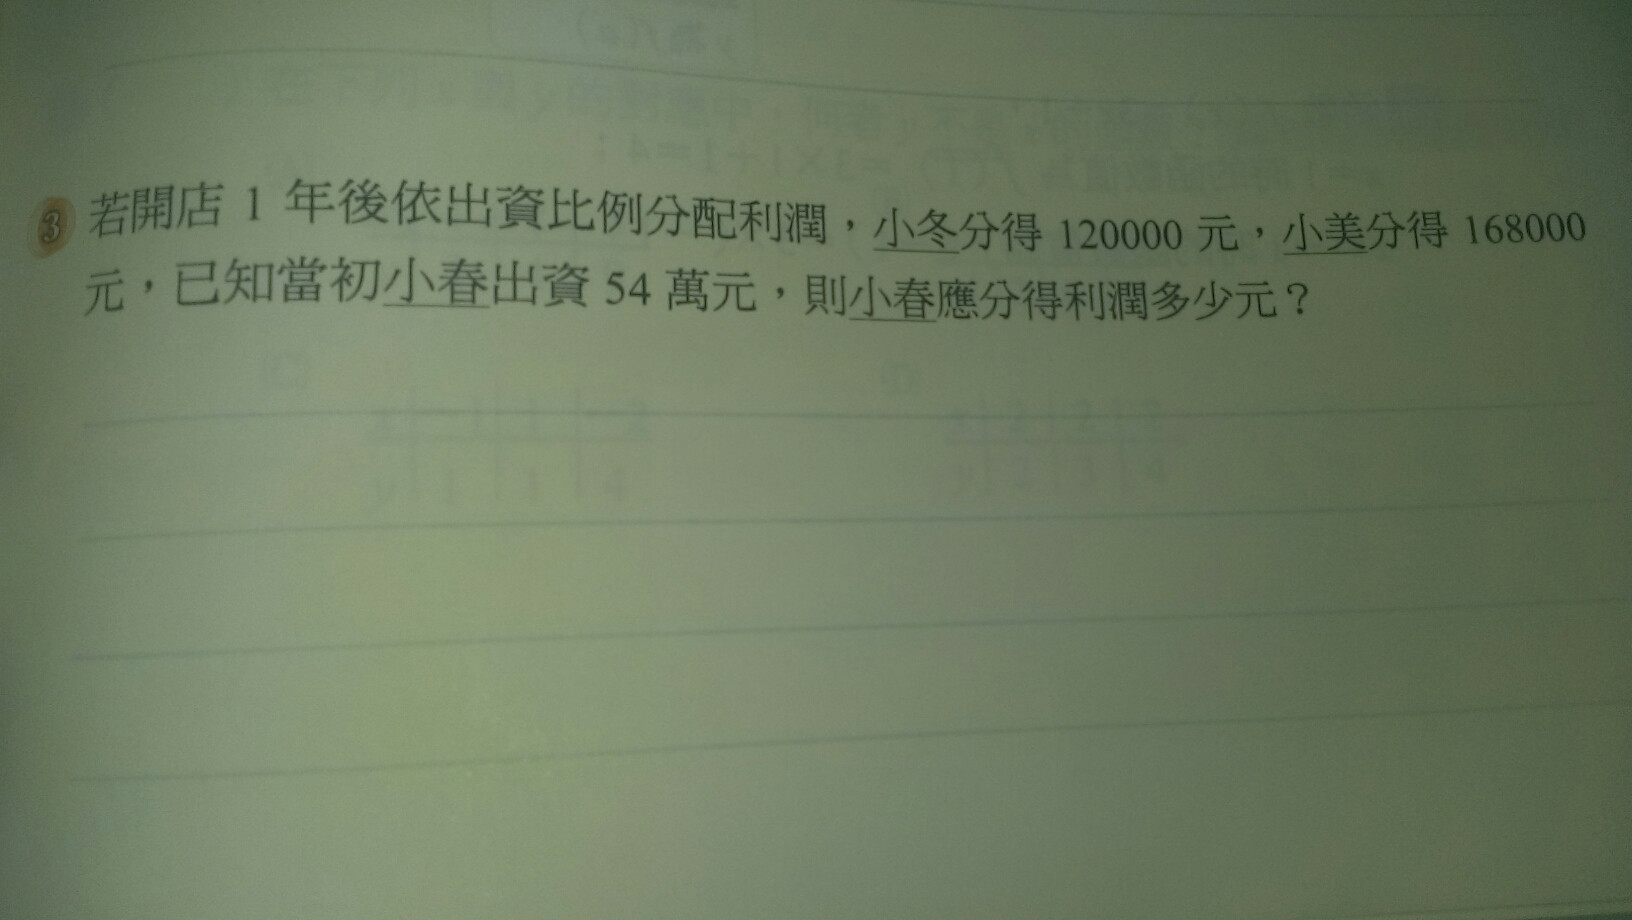 3 若開店 1 年後依出資比例分配利潤，小冬分得 120000 元，小美分得 168000
元，已知當初小春出資 54 萬元，則小春應分得利潤多少元？